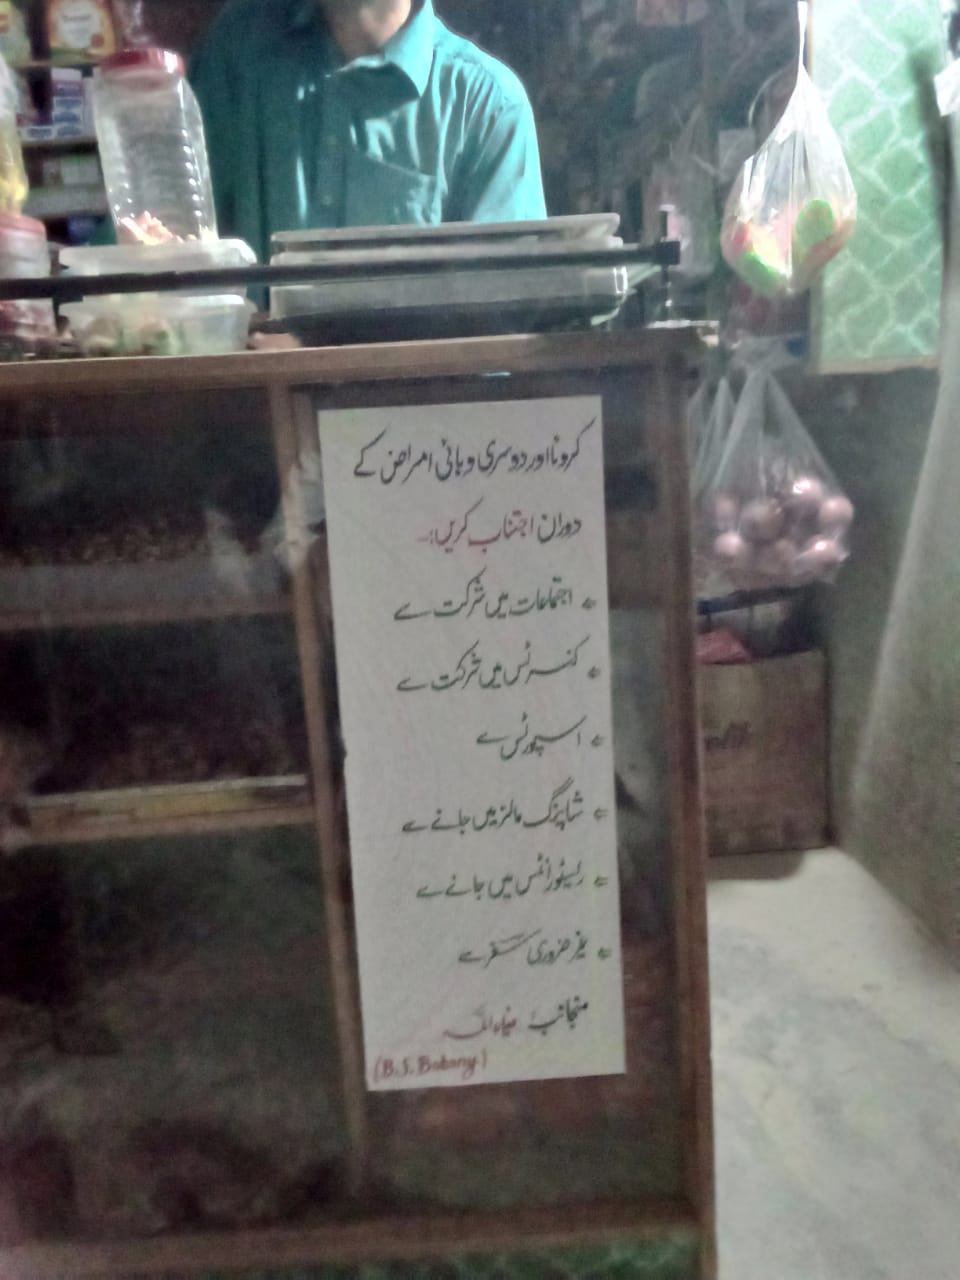 کرونا اور دوسری وبائی امراض کے
دوران اجتناب کریں:۔
اجتماعات میں شرکت سے
کنسرٹس میں شرکت سے
اسپورٹس سے
شاپنگ مالز میں جانے سے
ریسٹورانٹس میں جانے سے
غیر ضروری سفر سے
منجانب: ضیاء اللہ
(B.S. Botany)